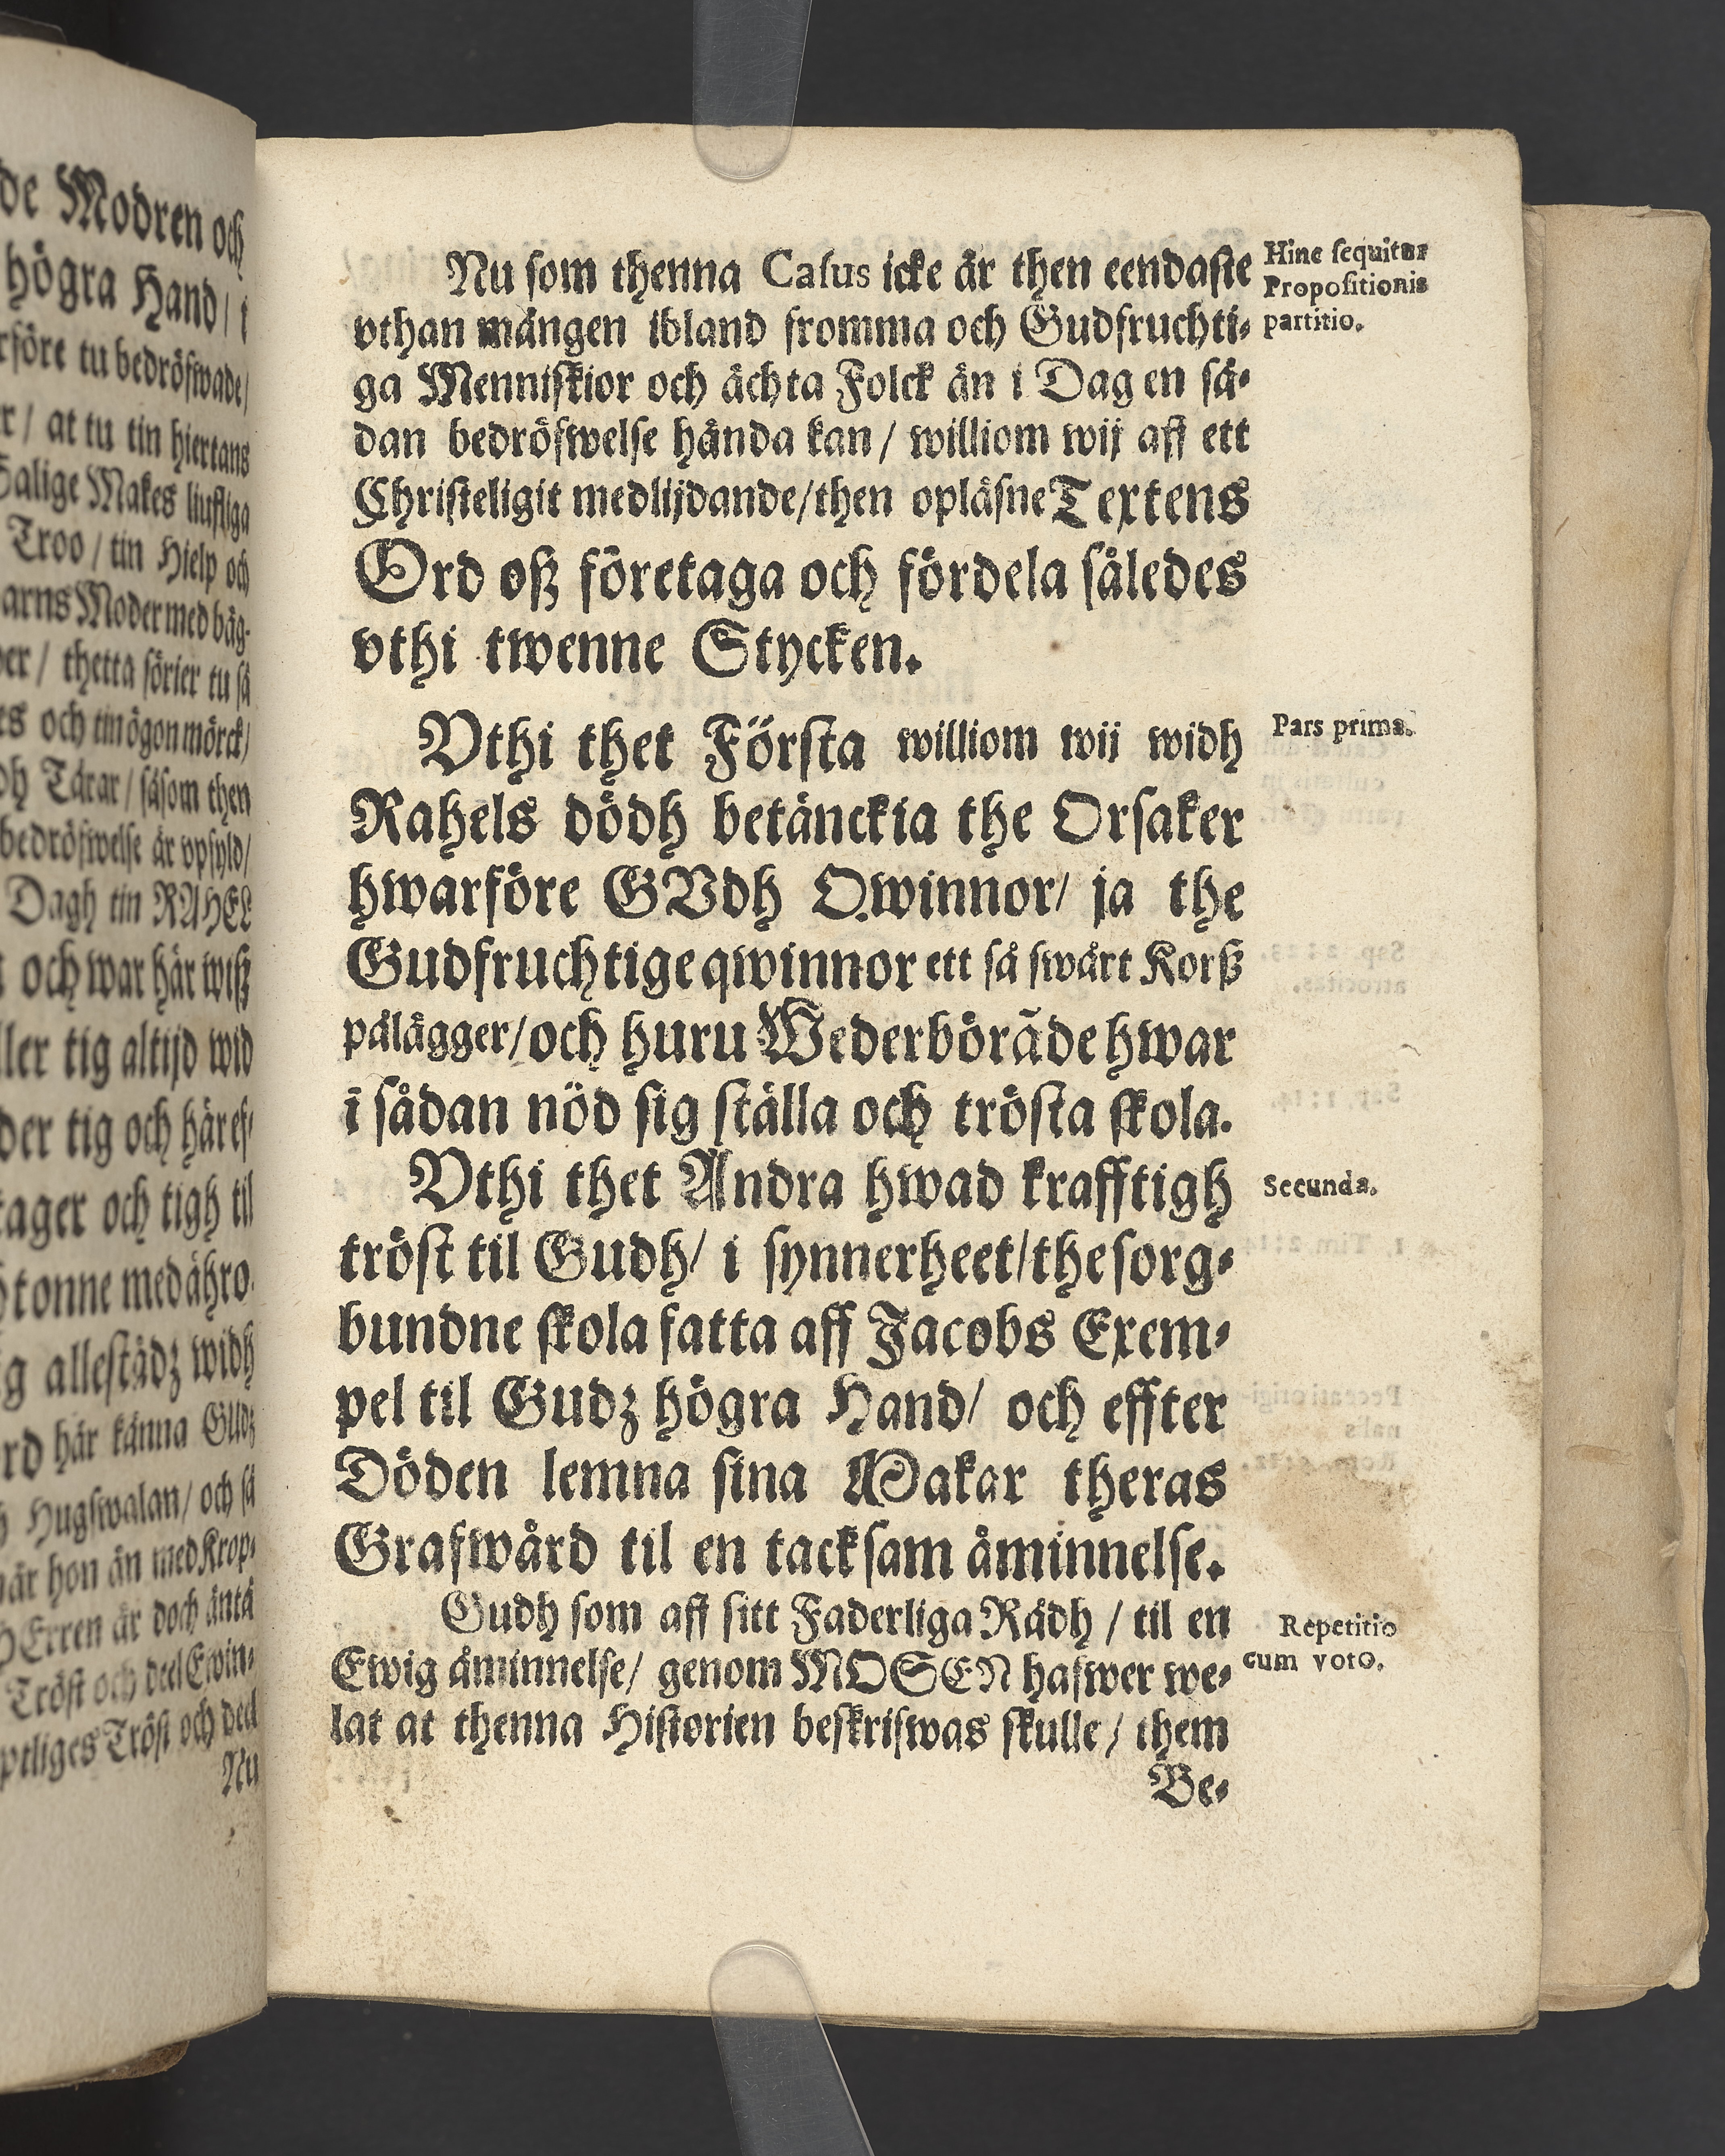 de Modren och
högra Hand / i
rföre tu bedröfwade /
r / at tu tin hiertans
Salige Makes liufliga
Troo / tin Hielp och
arns Moder med båg-
er / thetta sörier tu så
es och tin ögon mörck /
dh Tårar / såsom then
bedröfwelse är vpfyld /
Dagh tin RAHEL
och war här wiß
ller tig altijd wid
der tig och här ef-
tager och tigh til
tonne med ähro-
g allestädz widh
rd här känna GUdz
Hugswalan / och så
när hon än med Krop-
HErren är doch äntå
Tröst och deel Ewin-
ptliges Tröst och deel
Nu
Nu som thenna Casus icke är then eendaste
vthan mången ibland fromma och Gudfruchti-
ga Menniskior och ächta Folck än i Dag en så-
dan bedröfwelse hända kan / williom wij aff ett
Christeligit medlijdande / then opläsne Textens
Ord oß företaga och fördela således
vthi twenne Stycken.
Hinc sequitur
Propositionis
partitio.
Vthi thet Första williom wij widh
Rahels dödh betänckia the Orsaker
hwarföre GVdh Qwinnor / ja the
Gudfruchtige qwinnor ett så swårt Korß
pålägger / och huru Wederbörãde hwar
i sådan nöd sig ställa och trösta skola.
Pars prima.
Vthi thet Andra hwad krafftigh
tröst til Gudh / i synnerheet / the sorg-
bundne skola fatta aff Jacobs Exem-
pel til Gudz högra Hand / och effter
Döden lemna sina Makar theras
Grafwård til en tacksam åminnelse.
Secunda.
Gudh som aff sitt Faderliga Rådh / til en
Ewig åminnelse / genom MOSEN hafwer we-
lat at thenna Historien beskrifwas skulle / them
Repetitio
cum voto.
Be-